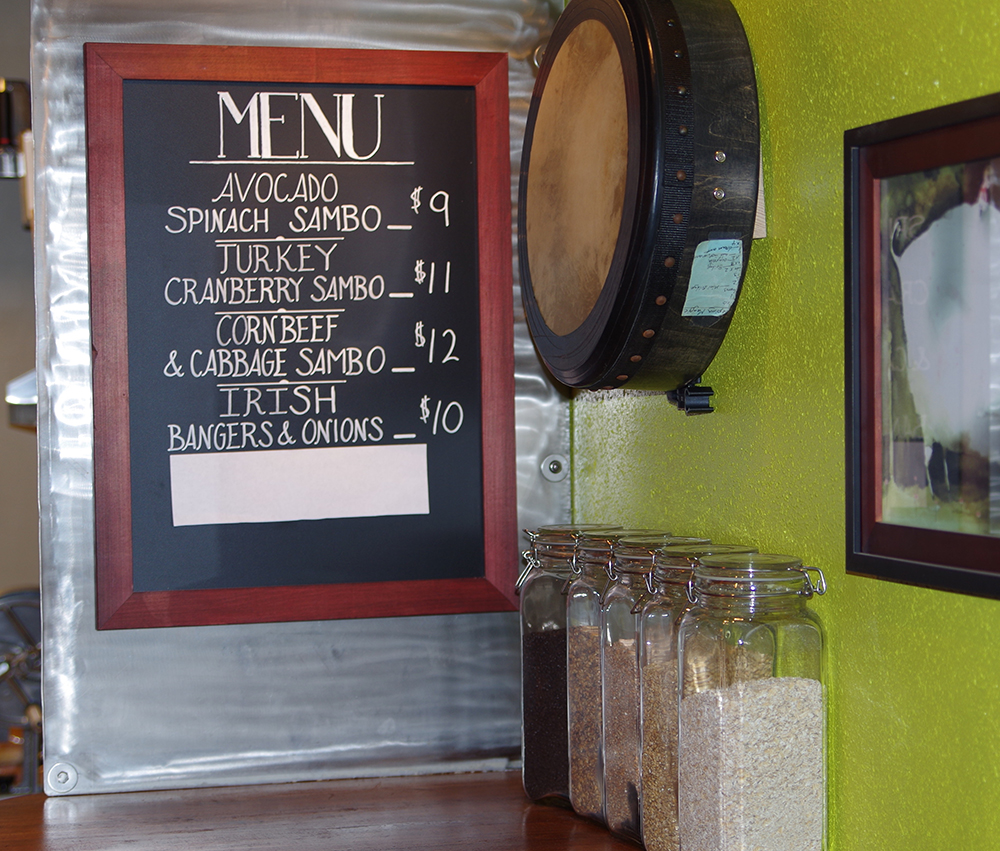 MENU
AVOCADO
SPINACH SAMBO _ $9
TURKEY
CRANBERRY SAMBO _ $11
CORNBEEF
& CABBAGE SAMBO _ $12
IRISH
BANGERS & ONIONS _ $10